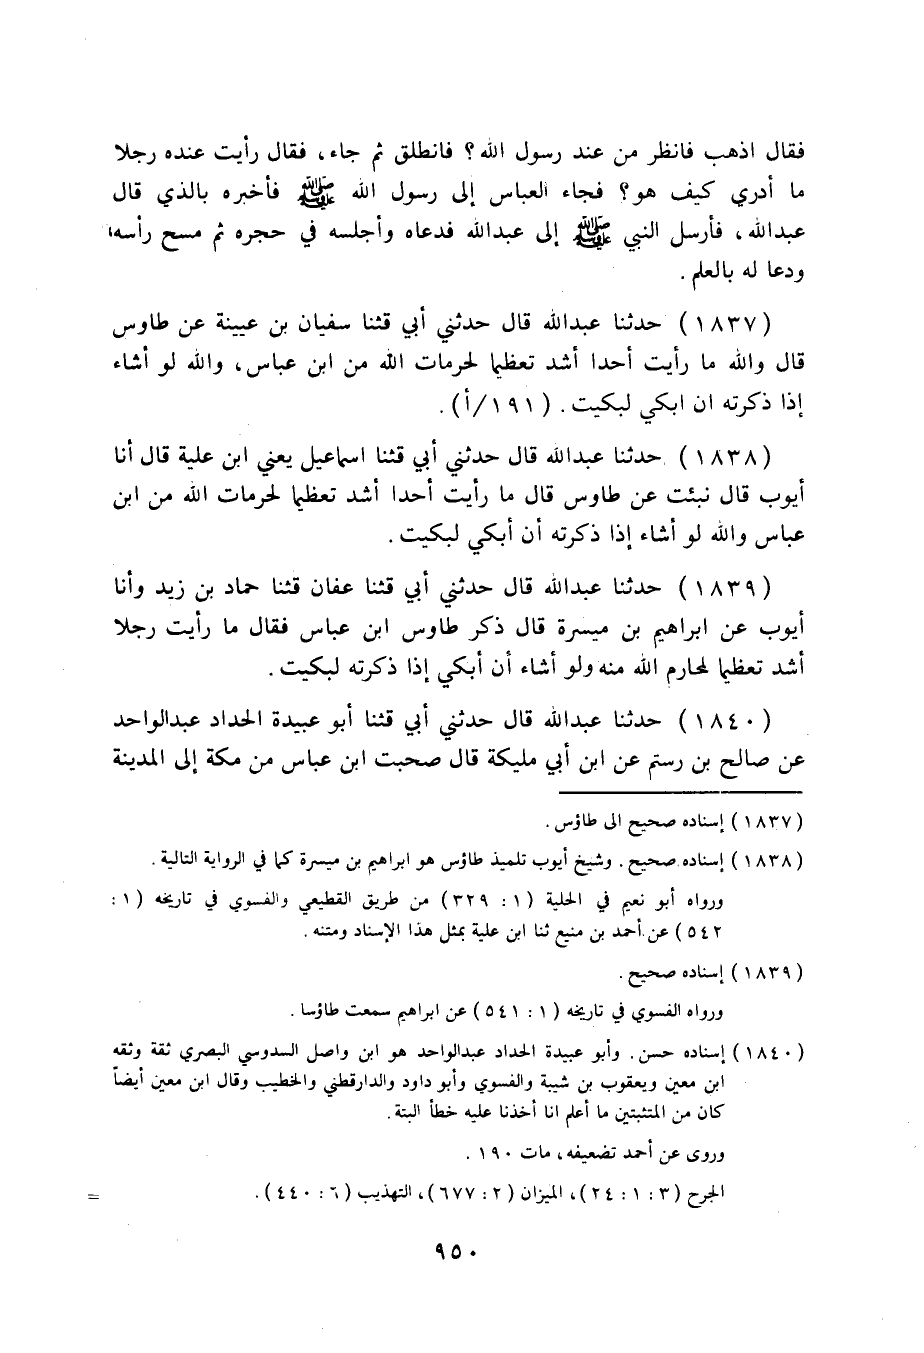 فقال اذهب فانظر من عند رسول الله؟ فانطلق ثم جاء، فقال رأيت عنده رجلا
ما أدري كيف هو؟ فجاء العباس إلى رسول الله ﷺ فأخبره بالذي قال
عبدالله، فأرسل النبي ﷺ إلى عبدالله فدعاه وأجلسه في حجره ثم مسح رأسه،
ودعا له بالعلم.
(١٨٣٧) حدثنا عبدالله قال حدثني أبي قثنا سفيان بن عيينة عن طاوس
قال والله ما رأيت أحدا أشد تعظيما لحرمات الله من ابن عباس، والله لو أشاء
إذا ذكرته ان ابكي لبكيت. (١٩١/أ).
(١٨٣٨) حدثنا عبدالله قال حدثني أبي قثنا اسماعيل يعني ابن علية قال أنا
أيوب قال نبئت عن طاوس قال ما رأيت أحدا أشد تعظيما لحرمات الله من ابن
عباس والله لو أشاء إذا ذكرته أن أبكي لبكيت.
(١٨٣٩) حدثنا عبدالله قال حدثني أبي قثنا عفان قثنا حماد بن زيد وأنا
أيوب عن ابراهيم بن ميسرة قال ذكر طاوس ابن عباس فقال ما رأيت رجلا
أشد تعظيما لمحارم الله منه ولو أشاء أن أبكي إذا ذكرته لبكيت.
(١٨٤٠) حدثنا عبدالله قال حدثني أبي قثنا أبو عبيدة الحداد عبدالواحد
عن صالح بن رستم عن ابن أبي مليكة قال صحبت ابن عباس من مكة إلى المدينة
(١٨٣٧) إسناده صحيح الى طاؤس.
(١٨٣٨) إسناده صحيح. وشيخ أيوب تلميذ طاؤس هو ابراهيم بن ميسرة كما في الرواية التالية.
ورواه أبو نعيم في الحلية (١: ٣٢٩) من طريق القطيعي والفسوي في تاريخه (١:
٥٤٢) عن أحمد بن منيع ثنا ابن علية بمثل هذا الإسناد ومتنه.
(١٨٣٩) إسناده صحيح.
ورواه الفسوي في تاريخه (١: ٥٤١) عن ابراهيم سمعت طاؤسا.
(١٨٤٠) إسناده حسن. وأبو عبيدة الحداد عبدالواحد هو ابن واصل السدوسي البصري ثقة وثقه
ابن معين ويعقوب بن شيبة والفسوي وأبو داود والدارقطني والخطيب وقال ابن معين أيضاً
كان من المتثبتين ما أعلم انا أخذنا عليه خطأ البتة.
وروى عن أحمد تضعيفه، مات ١٩٠.
الجرح (٣: ١: ٢٤)، الميزان (٢: ٦٧٧)، التهذيب (٦: ٤٤٠). =
٩٥٠